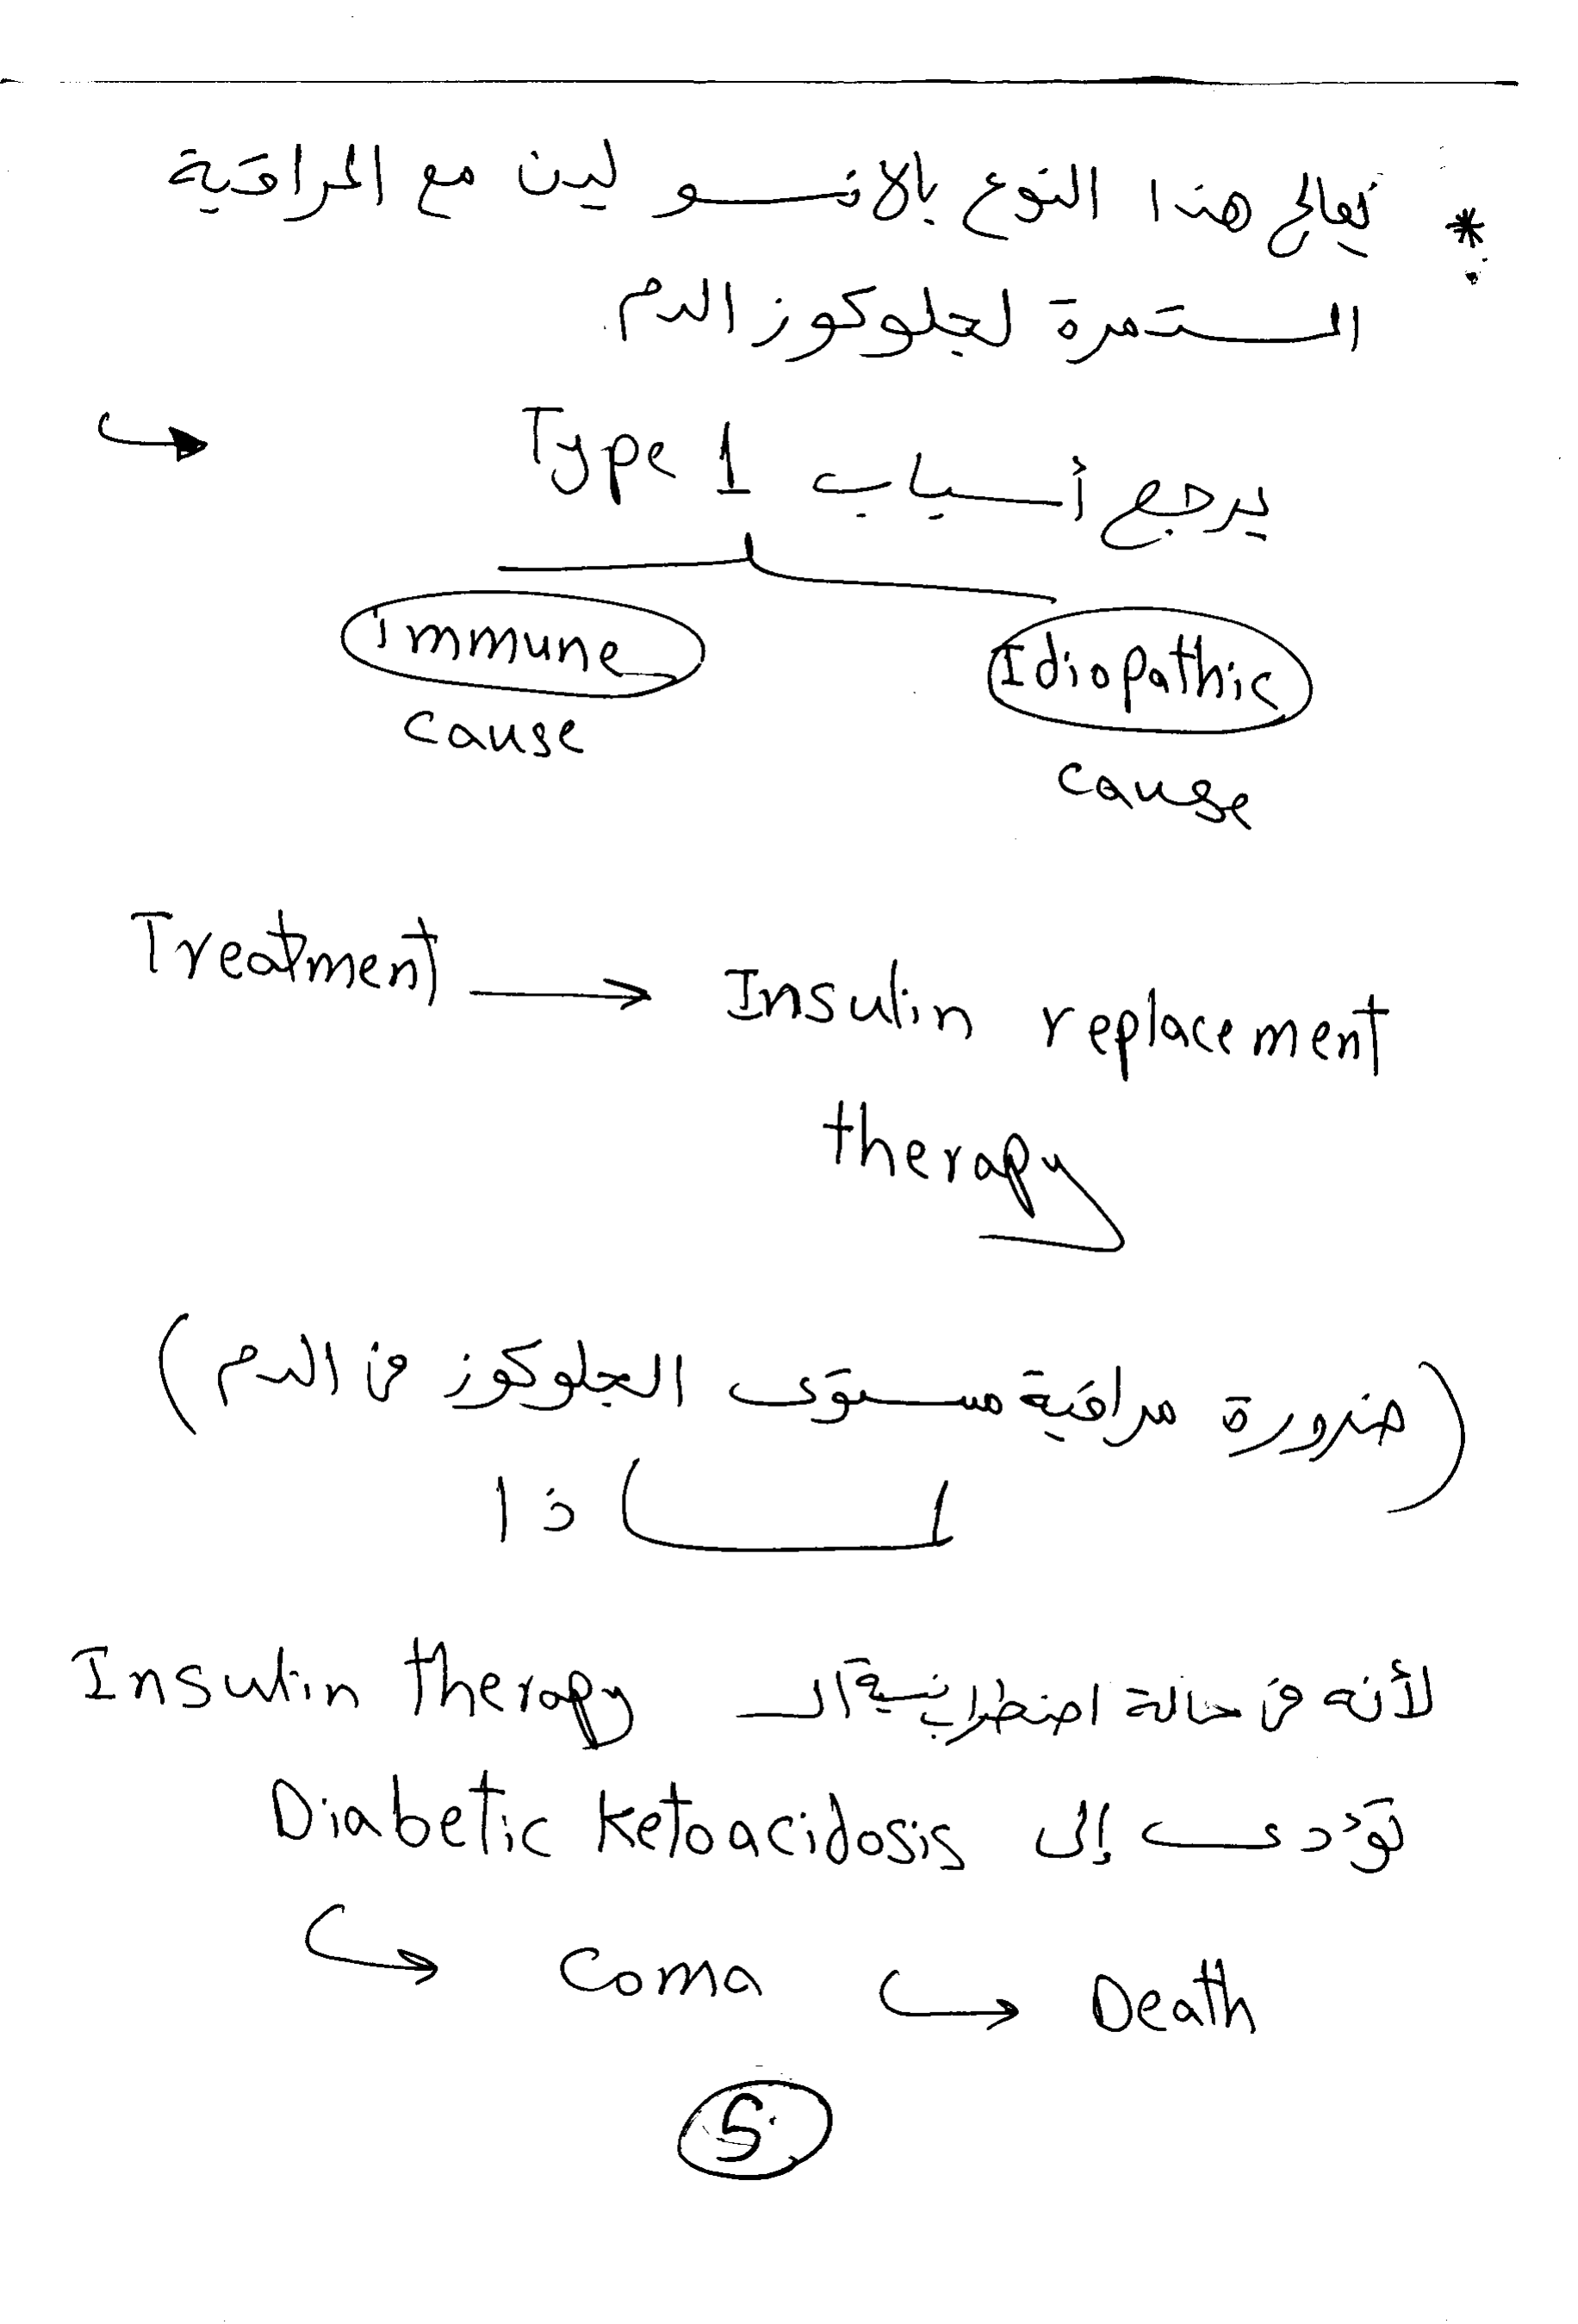 * نعالج هذا النوع بالانسولين مع المراقبة
المستمرة لجلوكوز الدم
يرجع أسباب Type 1
immune Idiopathic
cause cause
Treatment → Insulin replacement
therapy
(ضرورة مراقبة مستوى الجلوكوز في الدم)
لماذا
لأنه في حالة اضطراب نسبة الـ Insulin therapy
تؤدى إلى Diabetic ketoacidosis
↪ Coma ↪ Death
5